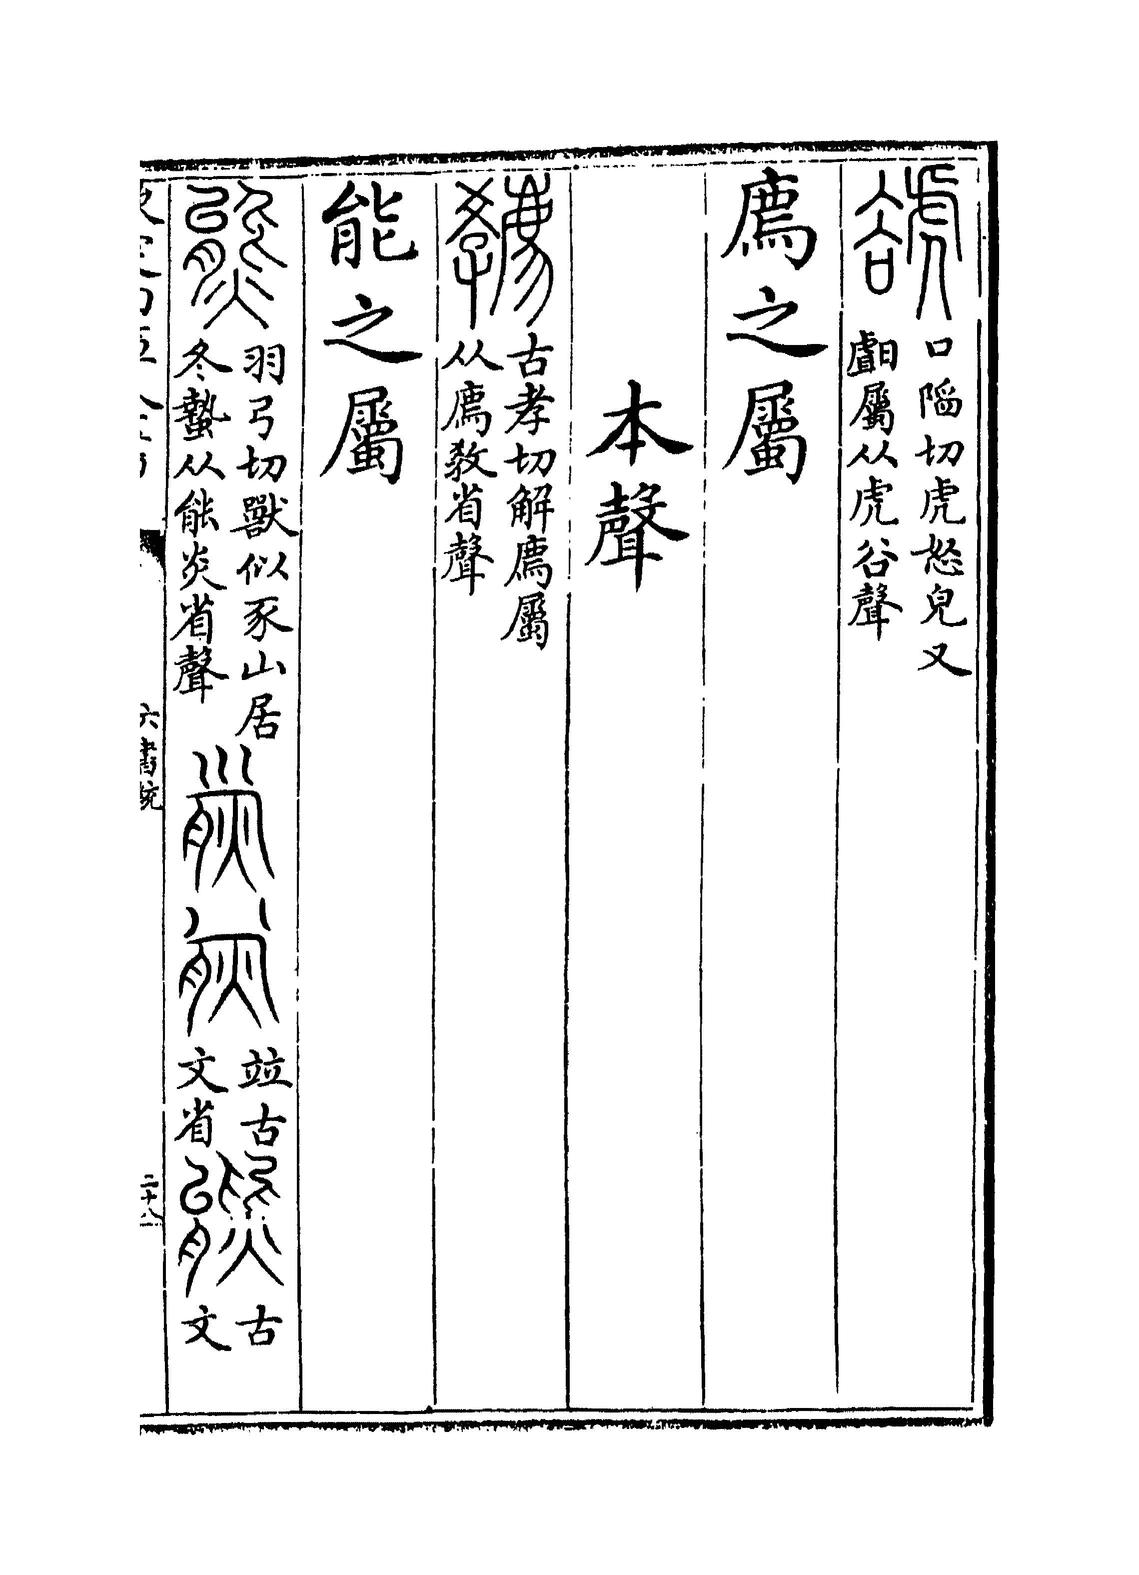 口陷切虎怒皃又
屬从虎谷聲
廌之屬
本聲
古孝切解廌屬
从廌教省聲
能之屬
熊
羽弓切獸似豕山居
冬蟄从能炎省聲
竝古
文省
古
文
六書統
二十八